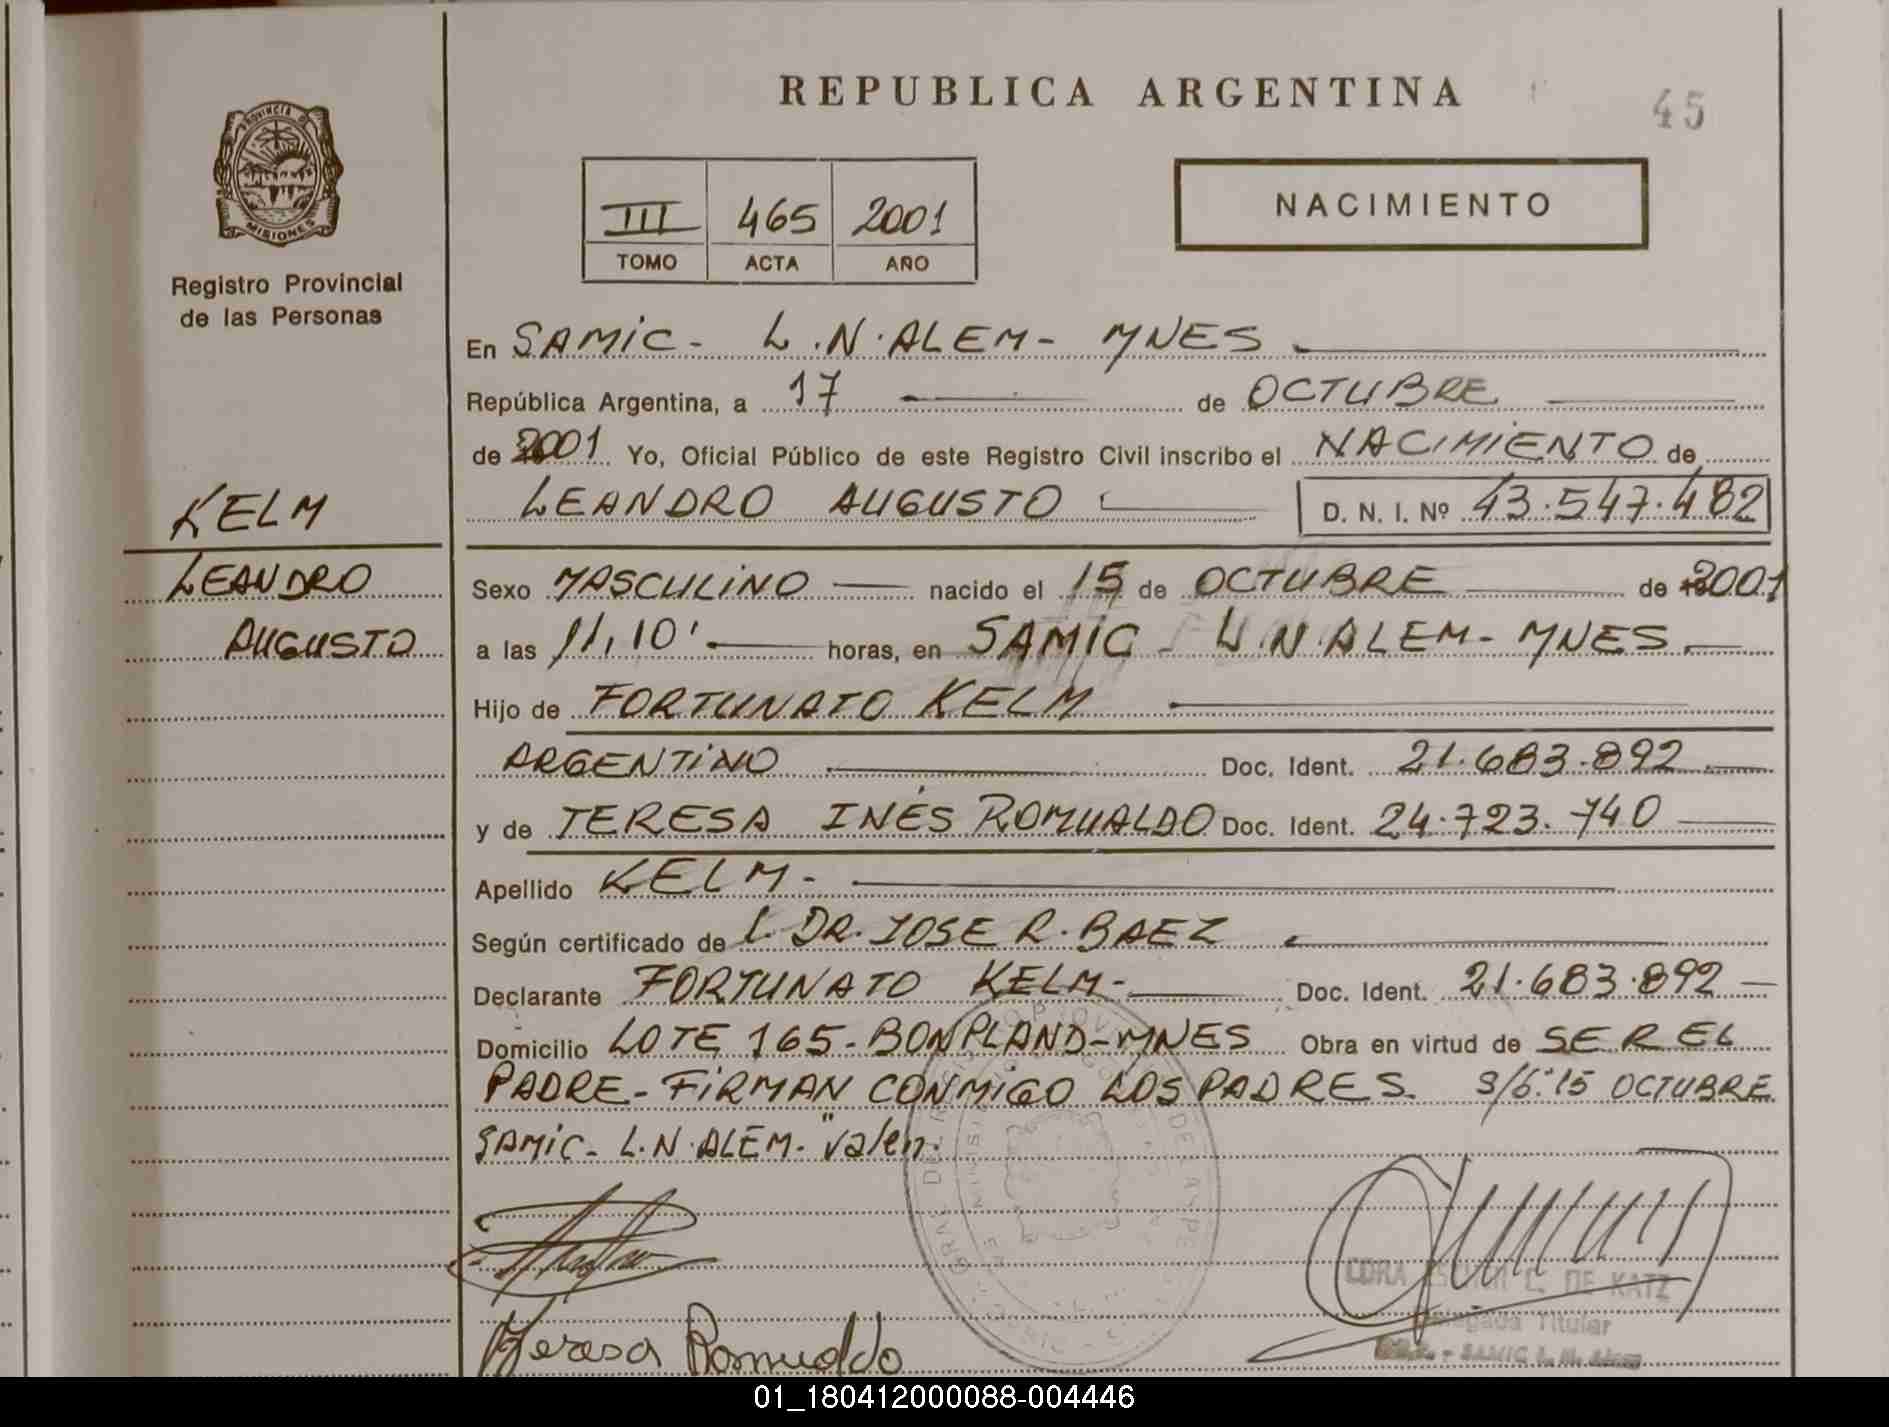 REPUBLICA ARGENTINA
45
PROVINCIA DE
MISIONES
Registro Provincial
de las Personas
III 465 2001
TOMO ACTA AÑO
NACIMIENTO
En SAMIC - L.N.ALEM - MNES
República Argentina, a 17 de OCTUBRE
de 2001 Yo, Oficial Público de este Registro Civil inscribo el NACIMIENTO de
KELM
LEANDRO AUGUSTO D. N. I. Nº 43.547.482
LEANDRO
AUGUSTO
Sexo MASCULINO nacido el 15 de OCTUBRE de 2001
a las 11,10' horas, en SAMIC - L.N.ALEM - MNES
Hijo de FORTUNATO KELM
ARGENTINO Doc. Ident. 21.683.892
y de TERESA INÉS ROMUALDO Doc. Ident. 24.723.740
Apellido KELM -
Según certificado de DR. JOSE R. BAEZ
Declarante FORTUNATO KELM - Doc. Ident. 21.683.892
Domicilio LOTE 165 - BONPLAND - MNES Obra en virtud de SER EL
PADRE - FIRMAN CONMIGO LOS PADRES. S/b: "15 OCTUBRE
SAMIC - L.N.ALEM - "valen.
Teresa Romualdo
L. DE KATZ
Delegada Titular
SAMIC L. N. Alem
01_180412000088-004446